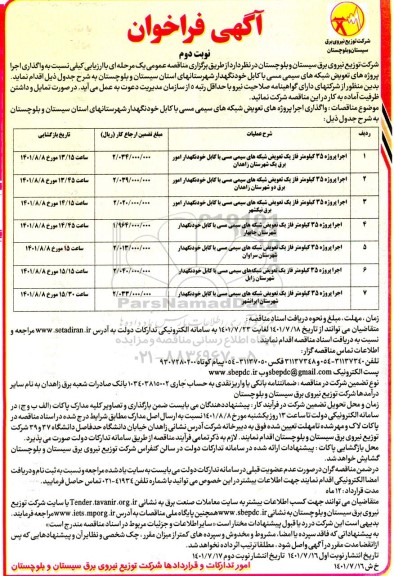 آگهی فراخوان
نوبت دوم
شرکت توزیع نیروی برق
سیستان و بلوچستان
شرکت توزیع نیروی برق سیستان و بلوچستان در نظر دارد از طریق برگزاری مناقصه عمومی یک مرحله ای با ارزیابی کیفی نسبت به واگذاری اجرا
پروژه های تعویض شبکه های سیمی مسی با کابل خودنگهدار شهرستانهای استان سیستان و بلوچستان به شرح جدول ذیل اقدام نماید.
بدین منظور از شرکتهای دارای گواهینامه صلاحیت نیرو با حداقل رتبه ۵ از سازمان مدیریت دعوت به عمل می آید. در صورت تمایل و داشتن
ظرفیت آماده به کار در این مناقصه شرکت نمائید.
موضوع مناقصات : واگذاری اجرا پروژه های تعویض شبکه های سیمی مسی با کابل خودنگهدار شهرستانهای استان سیستان و بلوچستان
به شرح جدول ذیل :
ردیف شرح عملیات مبلغ تضمین ارجاع کار (ریال) تاریخ بازگشایی
۱ اجرا پروژه ۳۵ کیلومتر فاز یک تعویض شبکه های سیمی مسی با کابل خودنگهدار امور برق یک شهرستان زاهدان ۲/۰۳۴/۰۰۰/۰۰۰ ساعت ۱۳/۱۵ مورخ ۱۴۰۱/۸/۸
۲ اجرا پروژه ۳۵ کیلومتر فاز یک تعویض شبکه های سیمی مسی با کابل خودنگهدار امور برق دو شهرستان زاهدان ۲/۰۴۹/۰۰۰/۰۰۰ ساعت ۱۳/۴۵ مورخ ۱۴۰۱/۸/۸
۳ اجرا پروژه ۳۵ کیلومتر فاز یک تعویض شبکه های سیمی مسی با کابل خودنگهدار امور برق نیکشهر ۲/۰۲۰/۰۰۰/۰۰۰ ساعت ۱۴/۱۵ مورخ ۱۴۰۱/۸/۸
۴ اجرا پروژه ۳۵ کیلومتر فاز یک تعویض شبکه های سیمی مسی با کابل خودنگهدار شهرستان چابهار ۱/۹۶۴/۰۰۰/۰۰۰ ساعت ۱۴/۴۵ مورخ ۱۴۰۱/۸/۸
۵ اجرا پروژه ۳۵ کیلومتر فاز یک تعویض شبکه های سیمی مسی با کابل خودنگهدار شهرستان سراوان ۲/۰۱۳/۰۰۰/۰۰۰ ساعت ۱۵ مورخ ۱۴۰۱/۸/۸
۶ اجرا پروژه ۳۵ کیلومتر فاز یک تعویض شبکه های سیمی مسی با کابل خودنگهدار شهرستان زابل ۲/۰۲۰/۰۰۰/۰۰۰ ساعت ۱۵/۱۵ مورخ ۱۴۰۱/۸/۸
۷ اجرا پروژه ۳۵ کیلومتر فاز یک تعویض شبکه های سیمی مسی با کابل خودنگهدار شهرستان ایرانشهر ۲/۰۳۳/۰۰۰/۰۰۰ ساعت ۱۵/۳۰ مورخ ۱۴۰۱/۸/۸
زمان ، مهلت ، مبلغ و نحوه دریافت اسناد مناقصه :
متقاضیان می توانند از تاریخ ۱۴۰۱/۷/۱۸ لغایت ۱۴۰۱/۷/۲۳ به سامانه الکترونیکی تدارکات دولت به آدرس www.setadiran.ir مراجعه و
نسبت به دریافت اسناد مناقصه اقدام نمایند.
اطلاعات تماس مناقصه گزار:
پست الکترونیک sbepdc@gmail.com وب www.sbepdc.ir
نوع تضمین شرکت در مناقصه : ضمانتنامه بانکی یا واریز نقدی به حساب جاری ۱۰۳۴۰۳۸۱۵۰۰۲ بانک صادرات شعبه برق زاهدان به نام سایر
درآمدها شرکت توزیع نیروی برق سیستان و بلوچستان
زمان و محل تحویل تضمین شرکت در فرآیند کار : پیشنهاددهندگان می بایست ضمن بارگذاری و تصاویر کلیه مدارک پاکات (الف و ب و ج) در
سامانه الکترونیکی دولت تا ساعت ۱۳ روز یکشنبه مورخ ۱۴۰۱/۸/۸ نسبت به ارسال اصل مدارک مطابق شرایط درج شده در اسناد مناقصه در
پاکات لاک و مهر شده تا مهلت تعیین شده فوق به دبیرخانه شرکت آدرس نشانی زاهدان خیابان دانشگاه حدفاصل دانشگاه ۳۷ و ۳۹ شرکت
توزیع نیروی برق سیستان و بلوچستان اقدام نمایند. لازم به ذکر تمامی فرآیند مناقصه از طریق سامانه تدارکات دولت صورت می پذیرد.
محل بازگشایی پاکات : پیشنهادات ارائه شده در سامانه تدارکات دولت در سالن کنفرانس شرکت توزیع نیروی برق سیستان و بلوچستان
گشایش خواهد شد.
در ضمن مناقصه گران در صورت عدم عضویت قبلی در سامانه تدارکات دولت می بایست به سایت یاد شده مراجعه و نسبت به ثبت نام و دریافت
امضا الکترونیکی اقدام نمایند جهت اطلاعات بیشتر در این خصوص می توانید با شماره تلفن ۴۱۹۳۴-۰۲۱ تماس حاصل فرمایید.
مدت قرارداد: ۱۲ ماه
متقاضیان می توانند جهت کسب اطلاعات بیشتر به سایت معاملات صنعت برق به نشانی Tender.tavanir.org.ir یا سایت شرکت توزیع
نیروی برق سیستان و بلوچستان به نشانی www.sbepdc.ir همچنین پایگاه ملی مناقصات به آدرس www.iets.mporg.ir مراجعه فرمایند.
بدیهی است این شرکت در رد یا قبول پیشنهادات مختار است «سایر اطلاعات و جزئیات مربوط در اسناد مناقصه مندرج است»
به پیشنهاداتی که فاقد سپرده یا امضا، مشروط و مخدوش و سپرده های کمتر از میزان مقرر ، چک شخصی و نظایر آن و پیشنهادهایی که پس
از انقضا مدت مقرر در آگهی واصل شود ، مطلقا ترتیب اثر داده نخواهد شد.
تاریخ انتشار نوبت اول ۱۴۰۱/۷/۱۶ تاریخ انتشار نوبت دوم ۱۴۰۱/۷/۱۷
خ ش ۱۴۰۱/۷/۱۶
امور تدارکات و قراردادها شرکت توزیع نیروی برق سیستان و بلوچستان